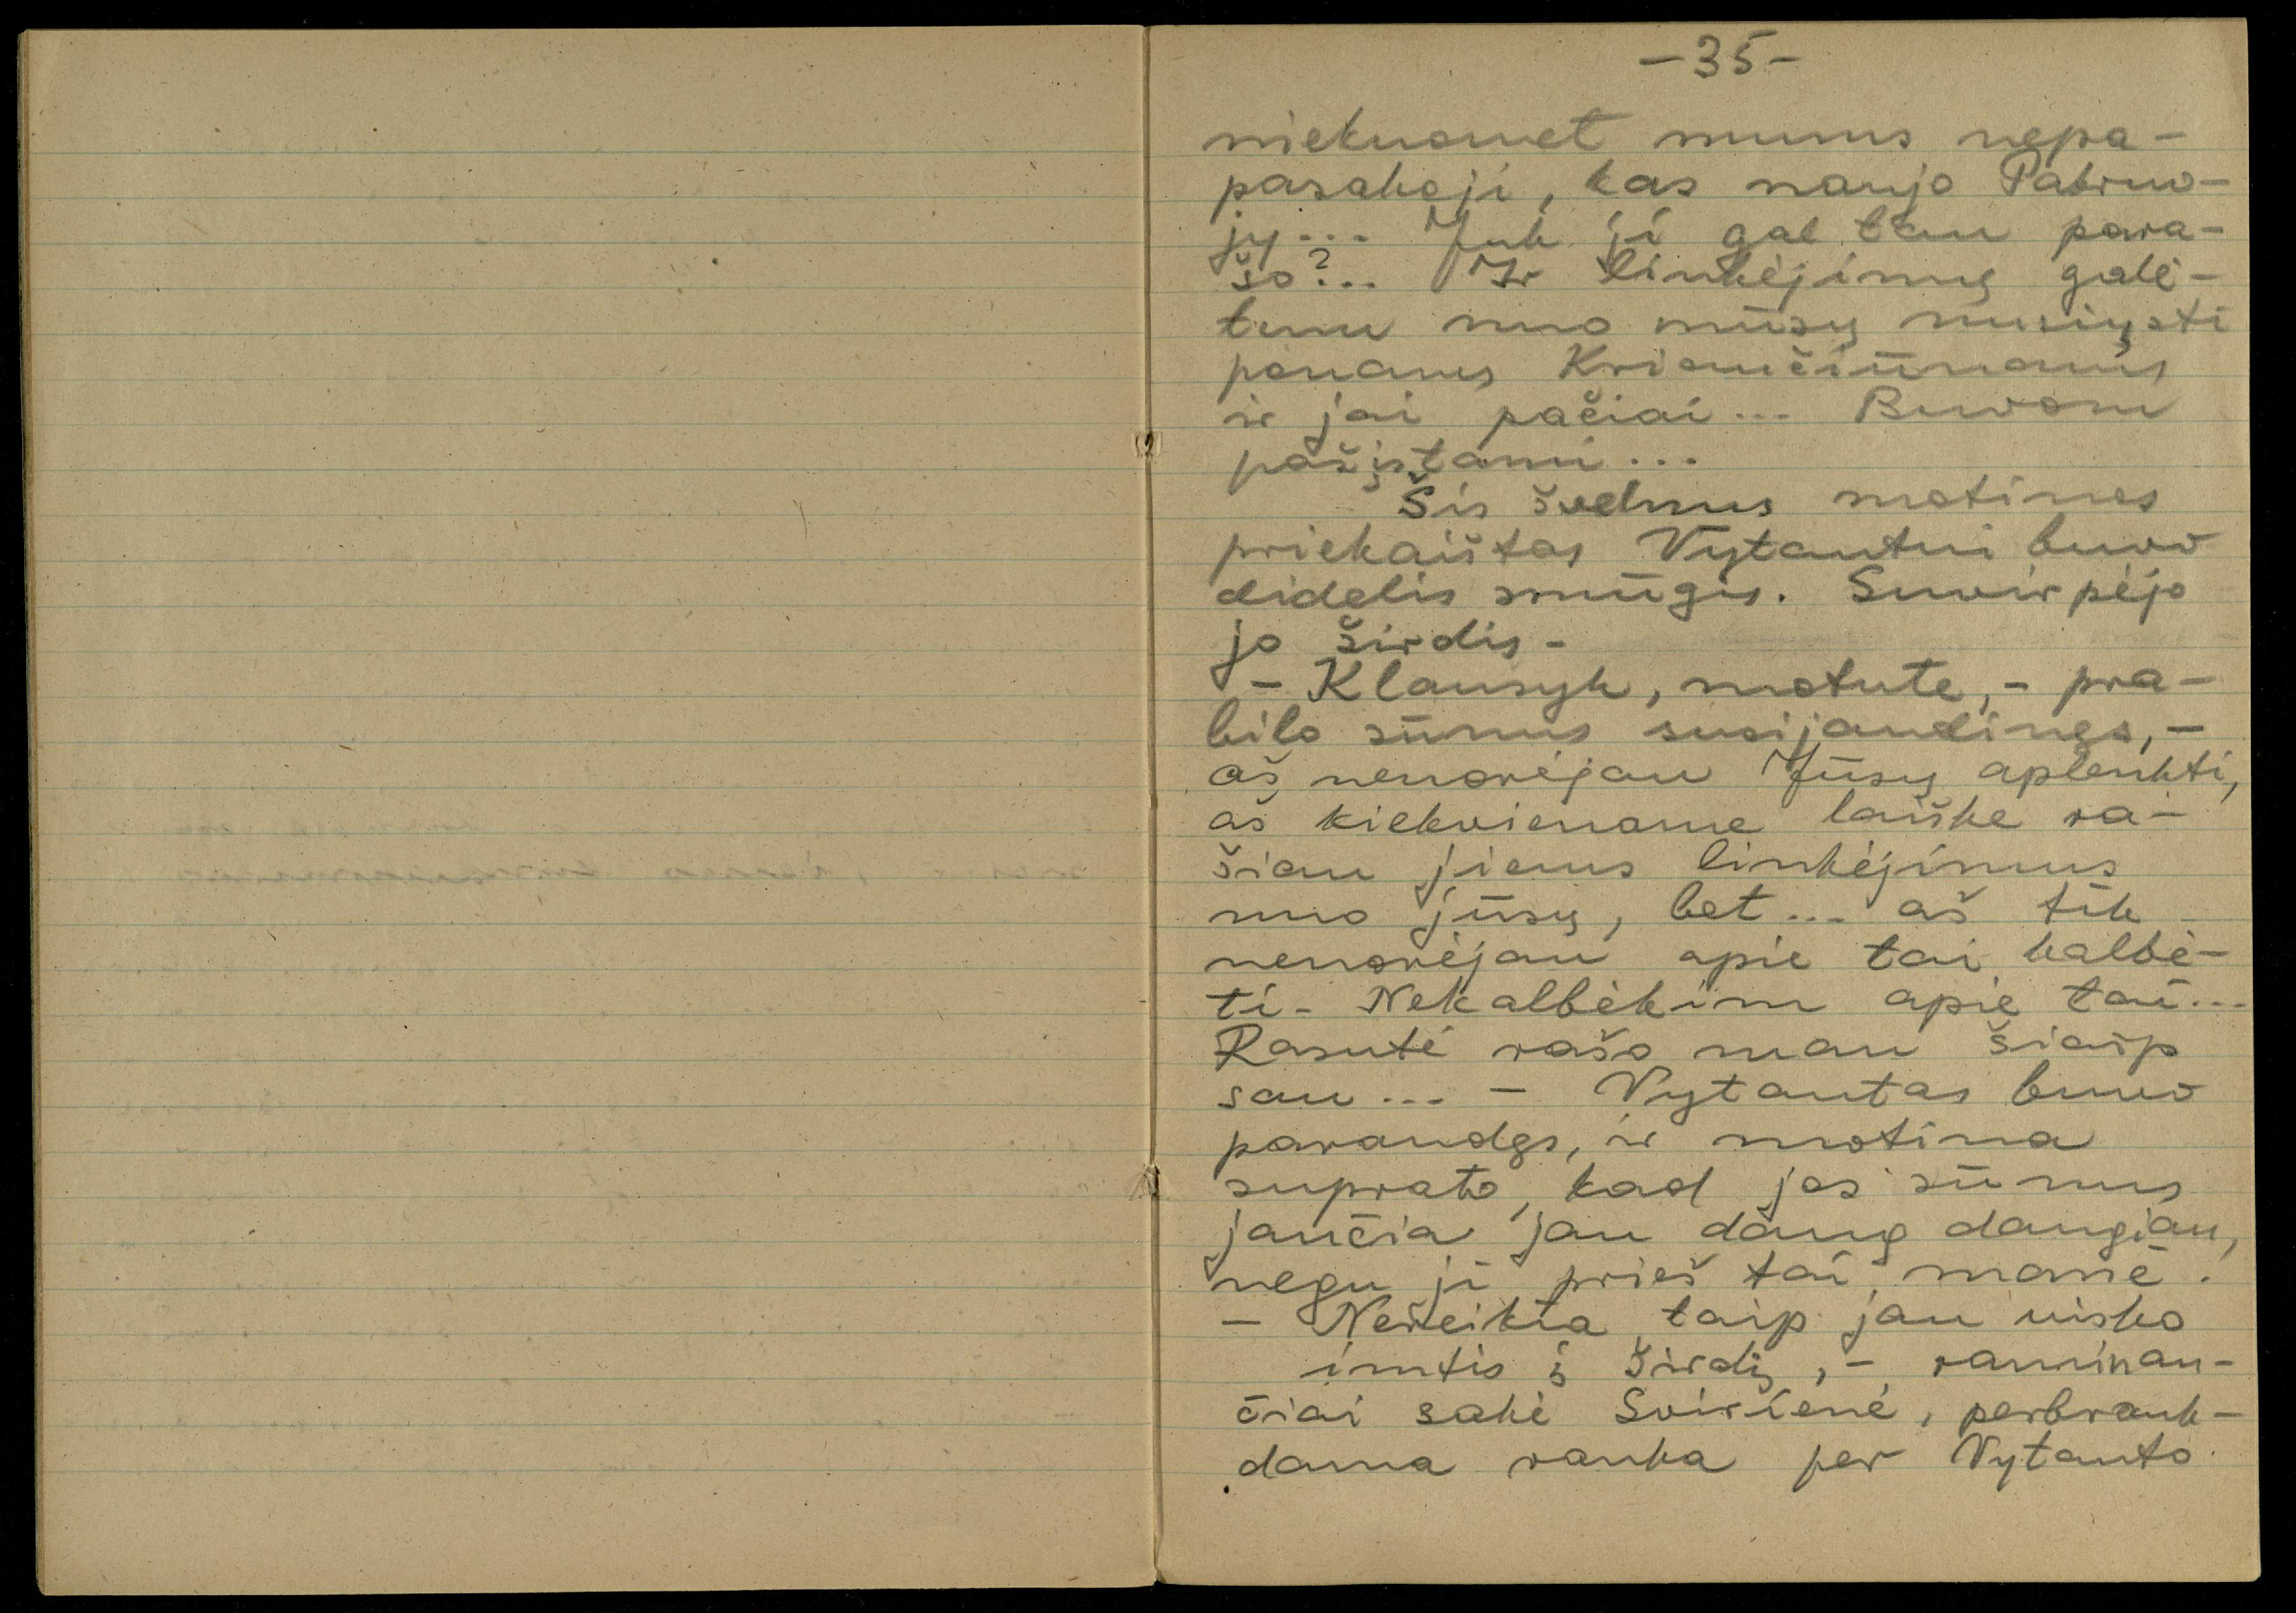 -35-
niekuomet mums nepa-
pasakoji, kas naujo Patruo-
jy... Juk ji gal tau para-
šo?.. Ir linkėjimų galė-
tum nuo mūsų nusiųsti
ponams Kriaučiūnams
ir jai pačiai... Buvom
pažįstami...
Šis švelnus motinos
priekaištas Vytautui buvo
didelis smūgis. Suvirpėjo
jo širdis -
- Klausyk, motute, - pra-
bilo sūnus susijaudinęs, -
aš nenorėjau Jūsų aplenkti,
aš kiekviename laiške ra-
šiau jiems linkėjimus
nuo jūsų, bet... aš tik
nenorėjau apie tai kalbė-
ti - Nekalbėkim apie tai...
Rasutė rašo man šiaip
sau... - Vytautas buvo
paraudęs, ir motina
suprato, kad jos sūnus
jaučia jau daug daugiau,
negu ji prieš tai manė.
- Nereikia taip jau visko
imtis į širdį, - raminan-
čiai sakė Svirienė, perbrauk-
dama ranka per Vytauto